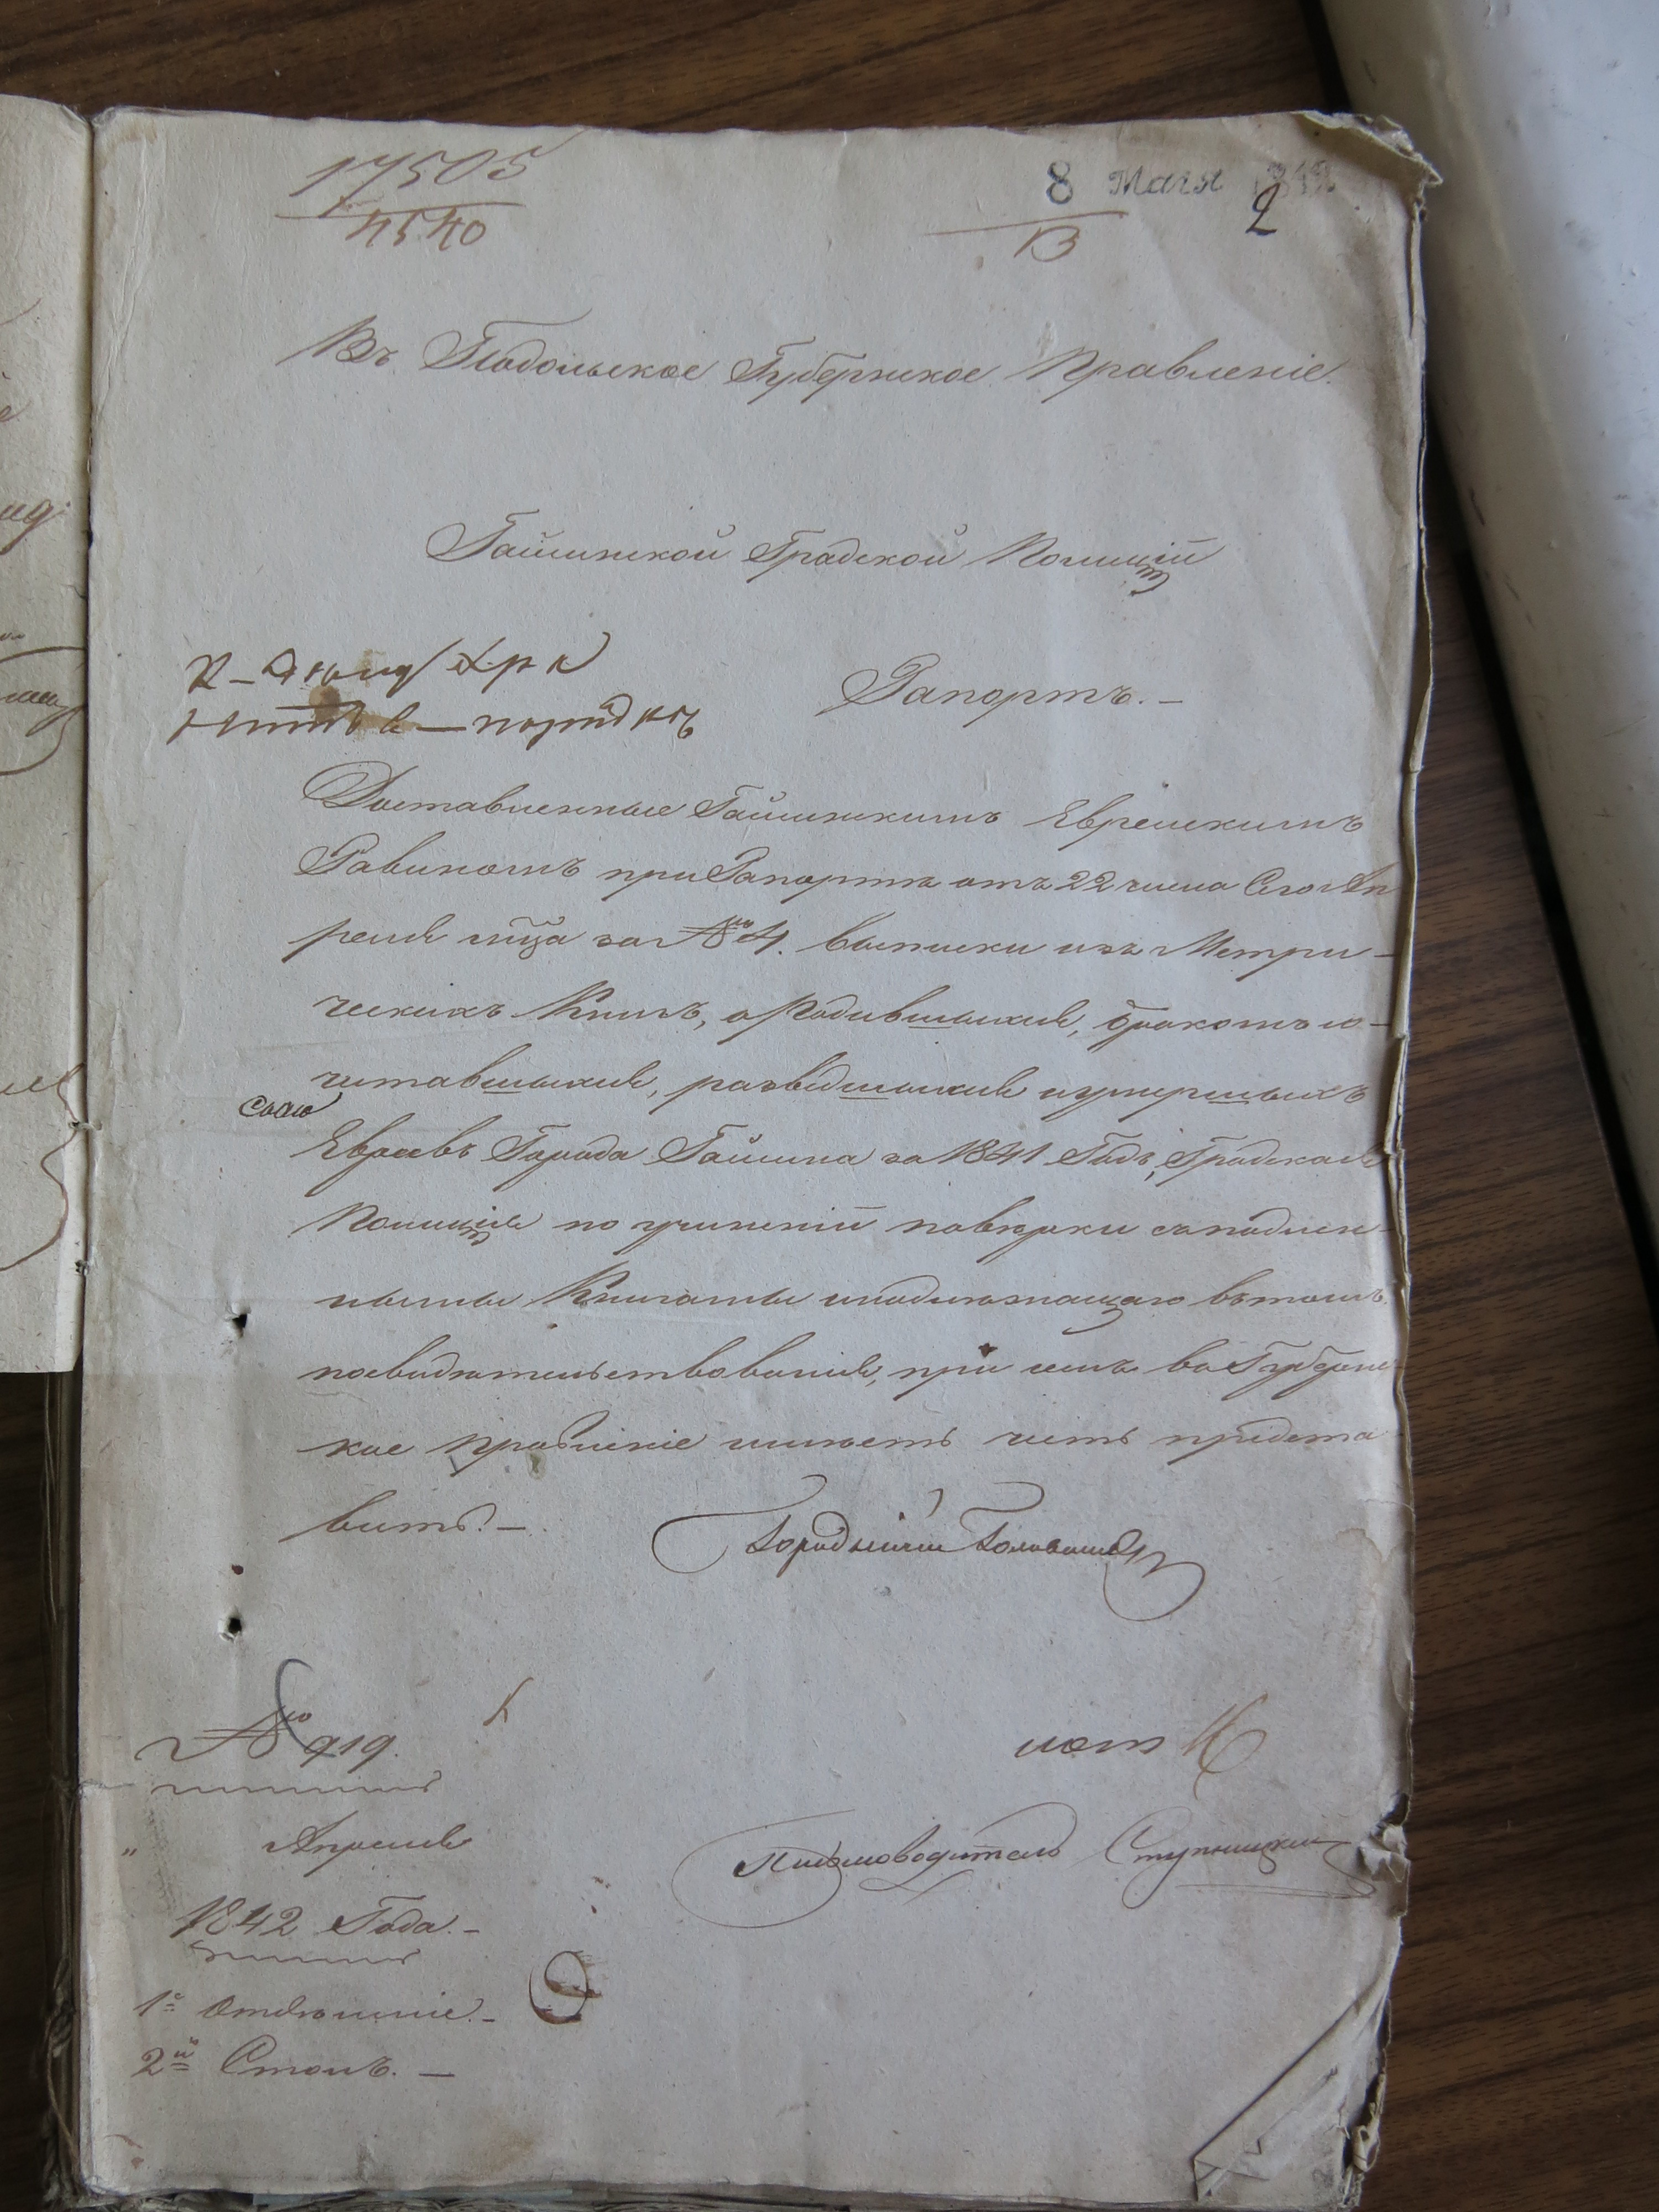 17505
4540
8 Мая 1842
13
2
Въ Подольское Губернское Правленіе.
Гайсинской Градской Полиціи
Рапортъ. —
Доставленные Гайсинскимъ Еврейскимъ
Равиномъ при Рапортѣ отъ 22 числа Сего Ап
реля м̃ца за № 4. выписки изъ Метри-
ческихъ Книгъ, о Родившихся, бракомъ со-
читавшихся, разведшихся и умершихъ
Евреевъ Города Гайсина за 1841 Годъ, Градская
Полиція по учиненіи повѣрки съ подлин-
ными Книгами и надлежащаго въ томъ
посвидѣтельствованія, при семъ въ Губернс-
кое Правленіе имѣетъ честь предста
вить. —
Городничій
№ 919.
Апреля
1842 Года. —
Письмоводитель Ступницкій
1е Отделеніе. —
2й Столъ. —